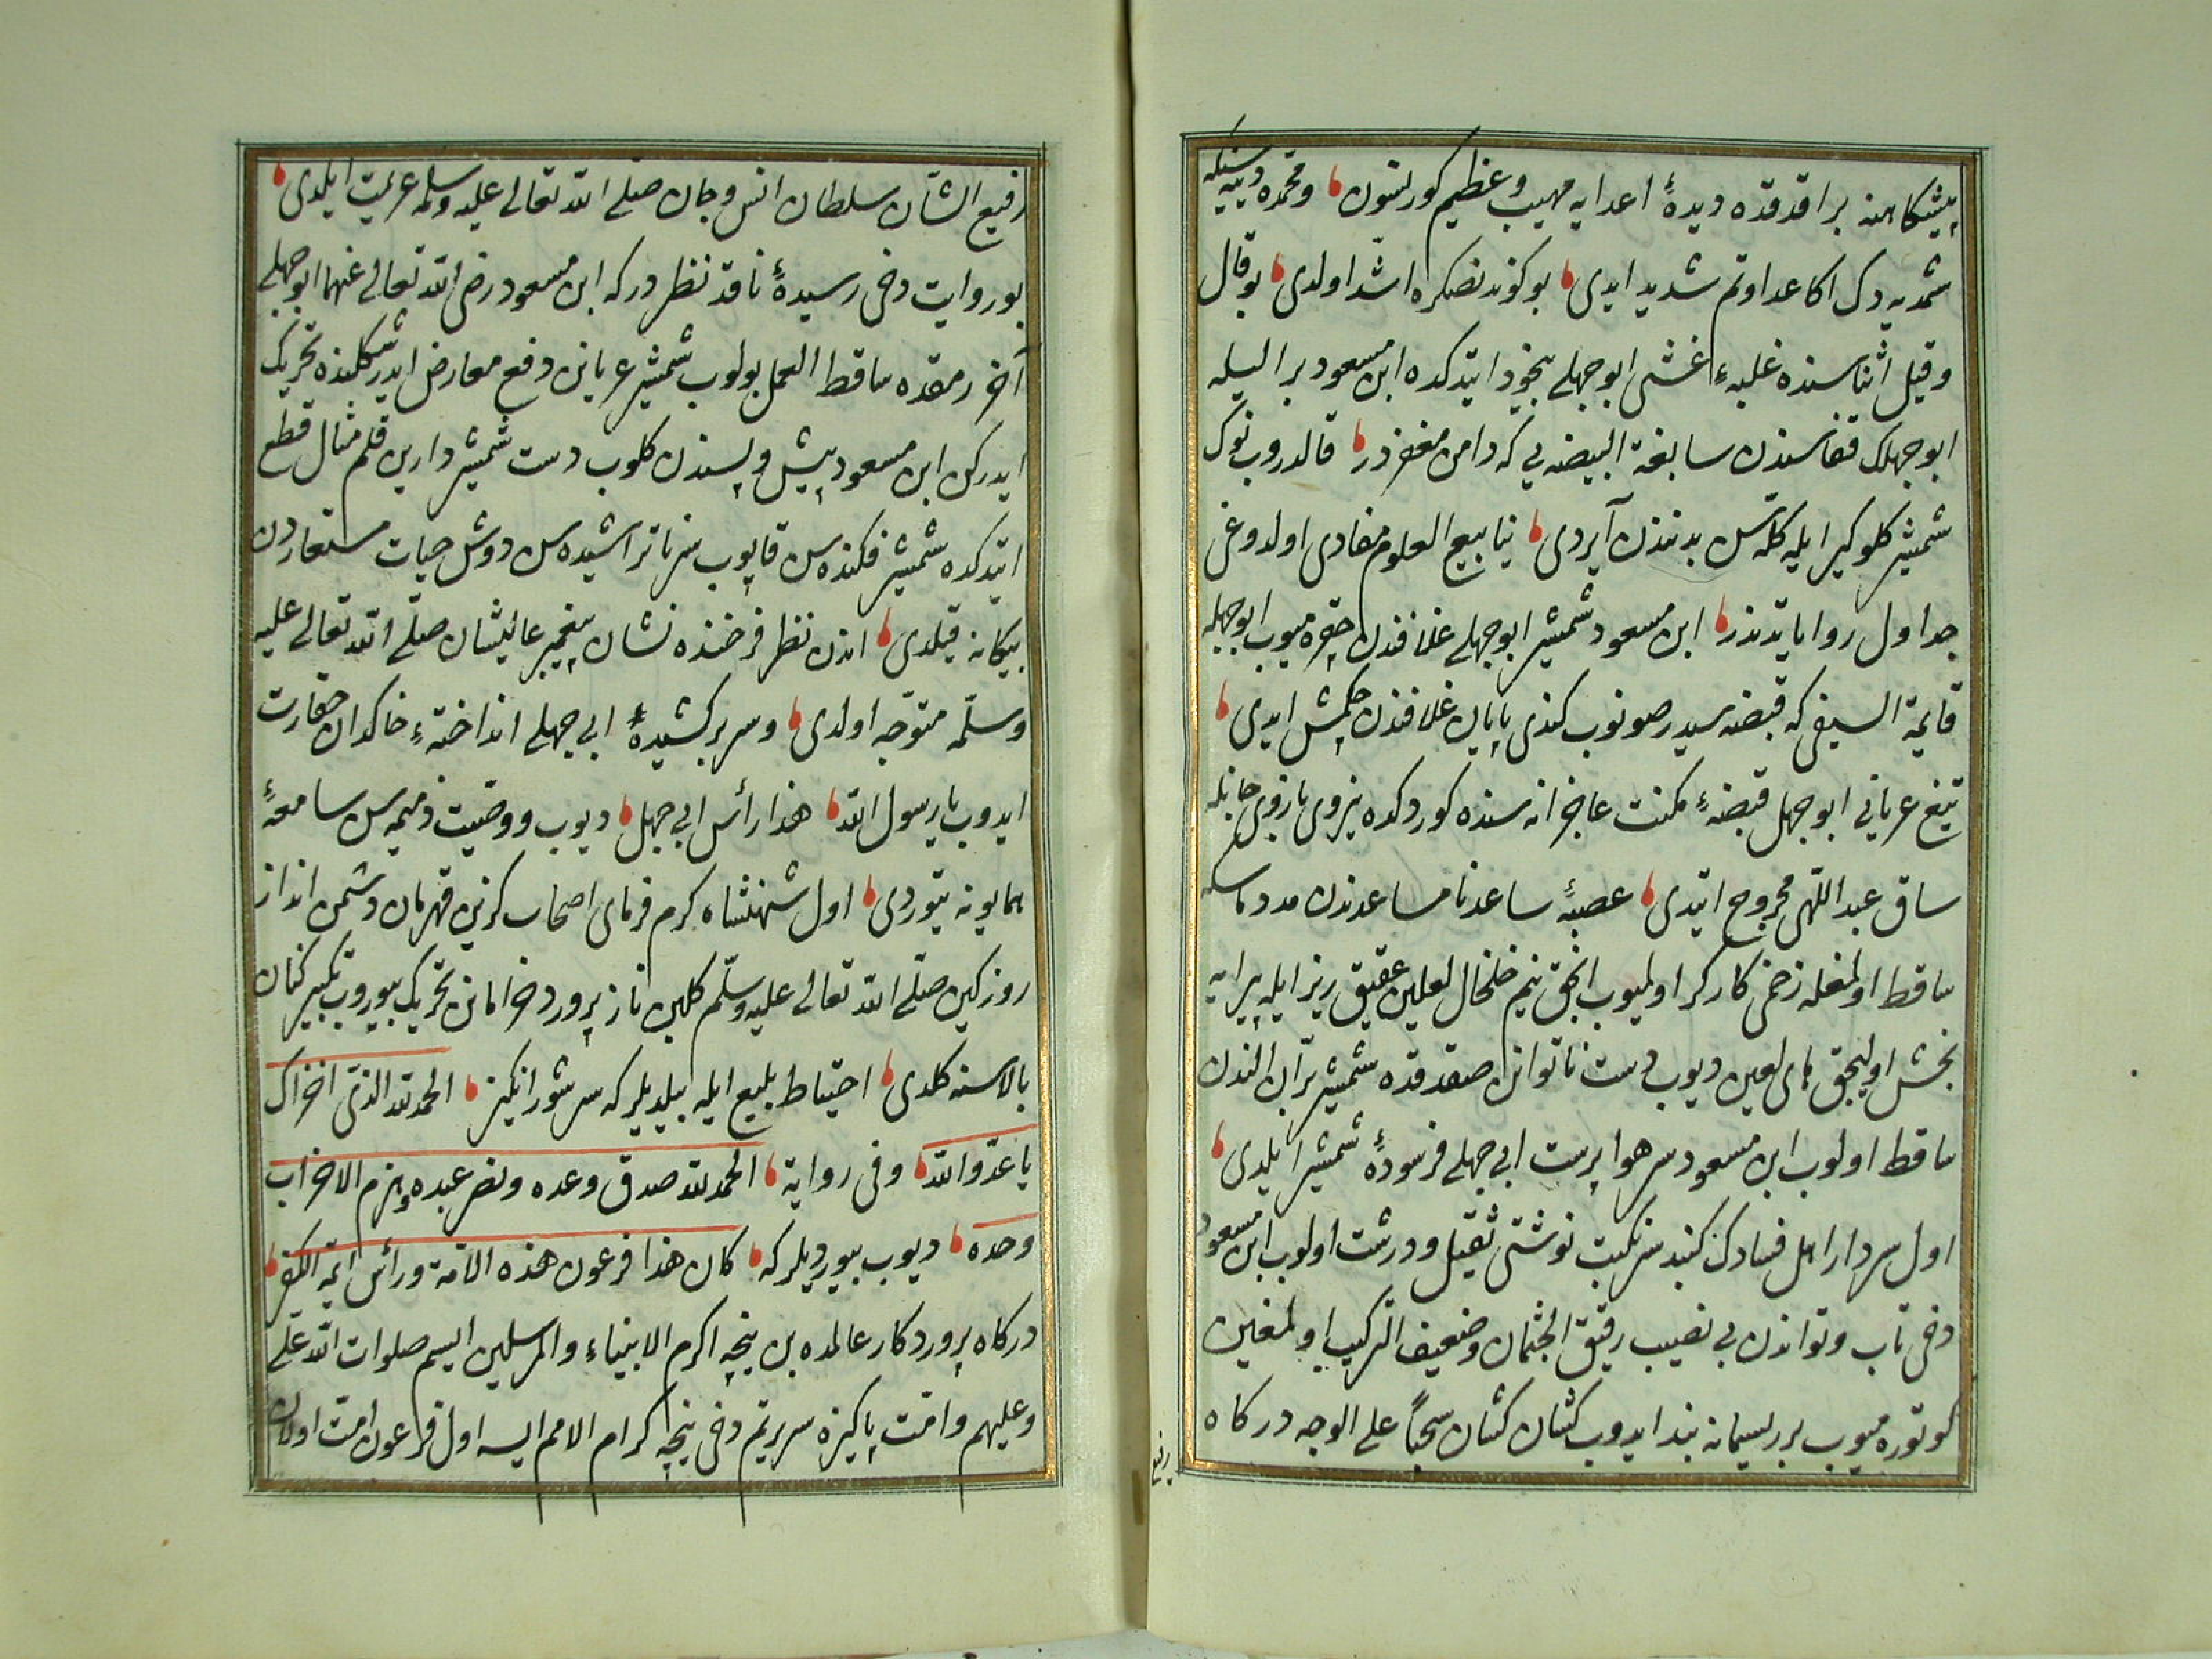 پیشکاهنه براقدقده دیدهٔ اعدایه مهیب وعظیم کورنسون ومحمده دییه سنکه
شمدیه دک اکا عداوتم شدید ایدی بوکوندنصکره اشد اولدی بو قال
وقیل اثناسنده غلبهء غشی ابو جهلی بیخود ایتدکده ابن مسعود بر الیله
ابو جهلک قفاسندن سابغة البیضه یی که دامن مغفردر قالدروب نوک
شمشیر کلوکیر ایله کله سن بدنندن آیردی ینابیع العلوم مفادی اولدوغی
جداول روایاتدندر ابن مسعود شمشیر ابو جهلی غلافندن چقره میوب ابو جهله
قایمة السیفی که قبضه سیدر صونوب کندی پایان غلافندن چکمش ایدی
تیغ عریانی ابو جهل قبضهء مکنت عاجزانه سنده کوردکده نیروی بازوی
ساق عبد اللهی مجروح ایتدی عصبهٔ ساعد نا مساعدندن مدد
ساقط اولمغله زخمی کارکر اولمیوب انجق نیم خلخال لعلین عقیق ریز ایله پیرایه
بخش اولیجق های لعین دیوب دست ناتوانن صقدقده شمشیر بران الندن
ساقط اولوب ابن مسعود سر هوا پرست ابی جهلی فرسودهٔ شمشیر ایلدی
اول سردار اهل فسادک کنبد سر نکبت نوشتی ثقیل ودرشت اولوب ابن مسعود
دخی تاب وتواندن بی نصیب رقیق الجثمان وضعیف الترکیب اولمغین
کوتوره میوب بر ریسمانه بند ایدوب کشان کشان سحباً علی الوجه درکاه
رفیع
رفیع الشان سلطان انس وجان صلی الله تعالی علیه وسلمه عزیمت ایلدی
بو روایت دخی رسیدهٔ ناقد نظردر که ابن مسعود رضی الله تعالی عنهما ابو جهلی
آخر رمقده ساقط العمل بولوب شمشیر عریانن دفع معارض ایدر شکلنده تحریک
ایدرکن ابن مسعود پیش وپسندن کلوب دست شمشیر دارین قلم مثال قطع
ایتدکده شمشیر فکنده سن قاپوب سر ناتراشیده سن دوش حیات مستعاردن
بیکانه قیلدی اندن نظر فرخنده نشان پیغمبر عالیشان صلی الله تعالی علیه
وسلمه متوجه اولدی وسر برکشیدهٔ ابی جهلی انداختهء خاکدان حقارت
ایدوب یا رسول الله هذا رأس ابی جهل دیوب ووضیت ذمیمه سن سامعهٔ
همایونه یتوردی اول شهنشاه کرم فرمای اصحاب کزین قهرمان دشمن انداز
روز کین صلی الله تعالی علیه وسلم کلبن ناز پرورد خرامانن تحریک بیوروب تکبیر کنان
بالاسنه کلدی احتیاط بلیغ ایله بیلدیلر که سر شور انکیز الحمد لله الذی اخزاک
یا عدو الله وفی روایة الحمد لله صدق وعده ونصر عبده وهزم الاحزاب
وحده دیوب بیوردیلر که کان هذا فرعون هذه الامة ورأس ائمة الکفر
درکاه پروردکار عالمده بن نیجه اکرم الانبیاء والمرسلین ایسم صلوات الله علی
وعلیهم وامت پاکیزه سریرتم دخی نیجه اکرام الامم ایسه اول فرعون امت اولان